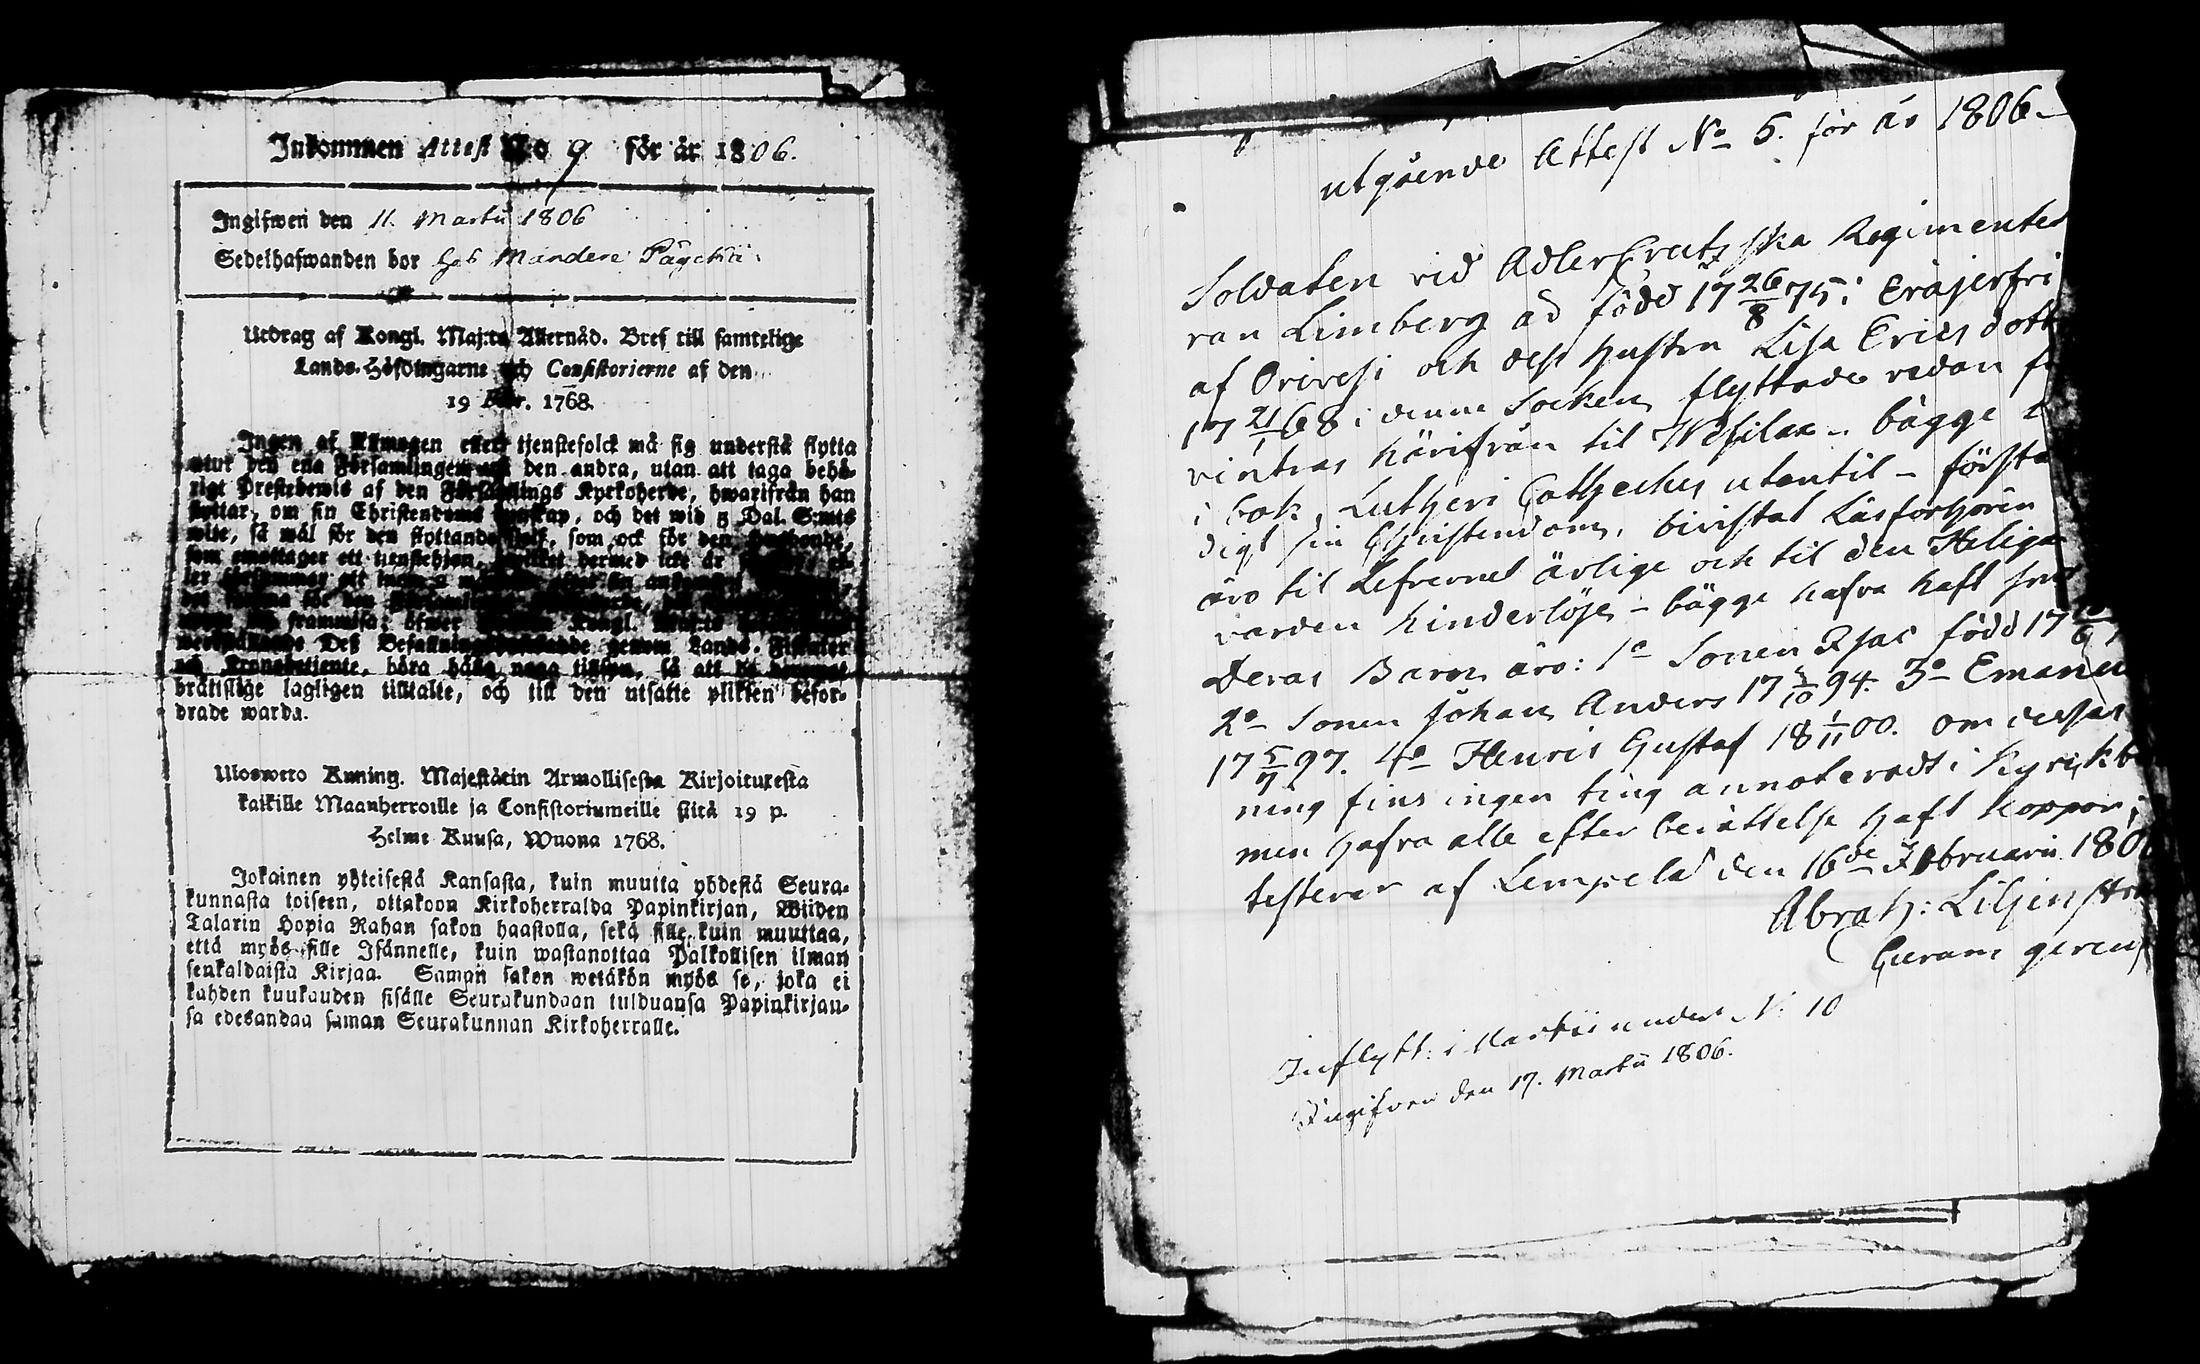 Inkommen Attest No 9 för år 1806.
Ingifwen den 11. Martii 1806
Sedelhafwanden bor hos Mandere Pägekii.
Utdrag af Kongl. Maj:ts Allernåd. Bref till samtelige
Lands-Höfdingarne och Consistorierne af den
19 Febr. 1768.
Ingen af Allmogen eller tjenstefolck må sig understå flytta
utur den ena Församlingen och den andra, utan att taga behö-
rigt Prestebewis af den Församlings Kyrkoherde, hwarifrån han
flyttar, om sin Christendoms kunskap, och det wid 5 Dal. S:mts
wite, så wäl för den flyttande sielf, som ock för den Husbonde,
som emottager ett tienstehjon, hwilket dermed icke är
framwisa; öfwer Kongl. Maj:ts
Deß Befallningshafwande genom Lands-Fiskaler
och Kronobetjente, böra hålla noga tillsyn, så att de
brätslige lagligen tilltalte, och till den utsatte plikten befor-
drade warda.
Ulosweto Kuning. Majestätin Armollisesta Kirjoituxesta
kaikille Maanherroille ja Consistoriumeille siitä 19 p.
Helme Kuusa, Wuona 1768.
Jokainen yhteisestä Kansasta, kuin muutta yhdestä Seura-
kunnasta toiseen, ottakoon Kirkoherralda Papinkirjan, Wiiden
Talarin Hopia Rahan sakon haastolla, sekä sille, kuin muuttaa,
että myös sille Isännelle, kuin wastanottaa Palkollisen ilman
senkaldaista Kirjaa. Saman sakon wetäkön myös se, joka ei
kahden kuukauden sisälle Seurakundaan tulduansa Papinkirjan-
sa edesandaa saman Seurakunnan Kirkoherralle.
utgående Attest No 5. för år 1806
Soldaten vid Adlercreutzska Regimentet
ran Limberg ad född 17 26/8 75 i Eräjerfvi
af Orivesi och dess hustru Lisa Ericsdott
17 21/1 68 i denne Socken, flyttade redan f
vintras härifrån til Wesilax - bägge
i bok, Lutheri Catheches utantil - första
digt sin Christendom, bivistat Läsförhören
äro til Lefvernet ärlige och til den Heliga
varden hinderlöse - bägge hafva haft
Deras Barn äro: 1o Sonen Isac född 17
2o Sonen Johan Anders 17 5/10 94. 3o Emanu
17 5/7 97. 4o Henric Gustaf 18 1/11 00. om dessas
ning fins ingen ting annoteradt i Kyrckb
men hafva alle efter berättelse haft koppor,
testerar af Lempelä den 16de Februarii 180
Abrah: Liljenstr
Curam gerens
Inflytt: i Martii under N: 10
Ingifven den 17. Martii 1806.